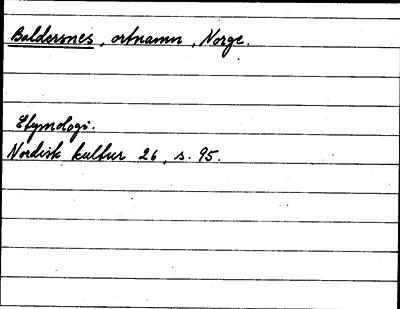 Baldersnes, ortnamn, Norge.
Etymologi.
Nordisk kultur 26, s. 95.